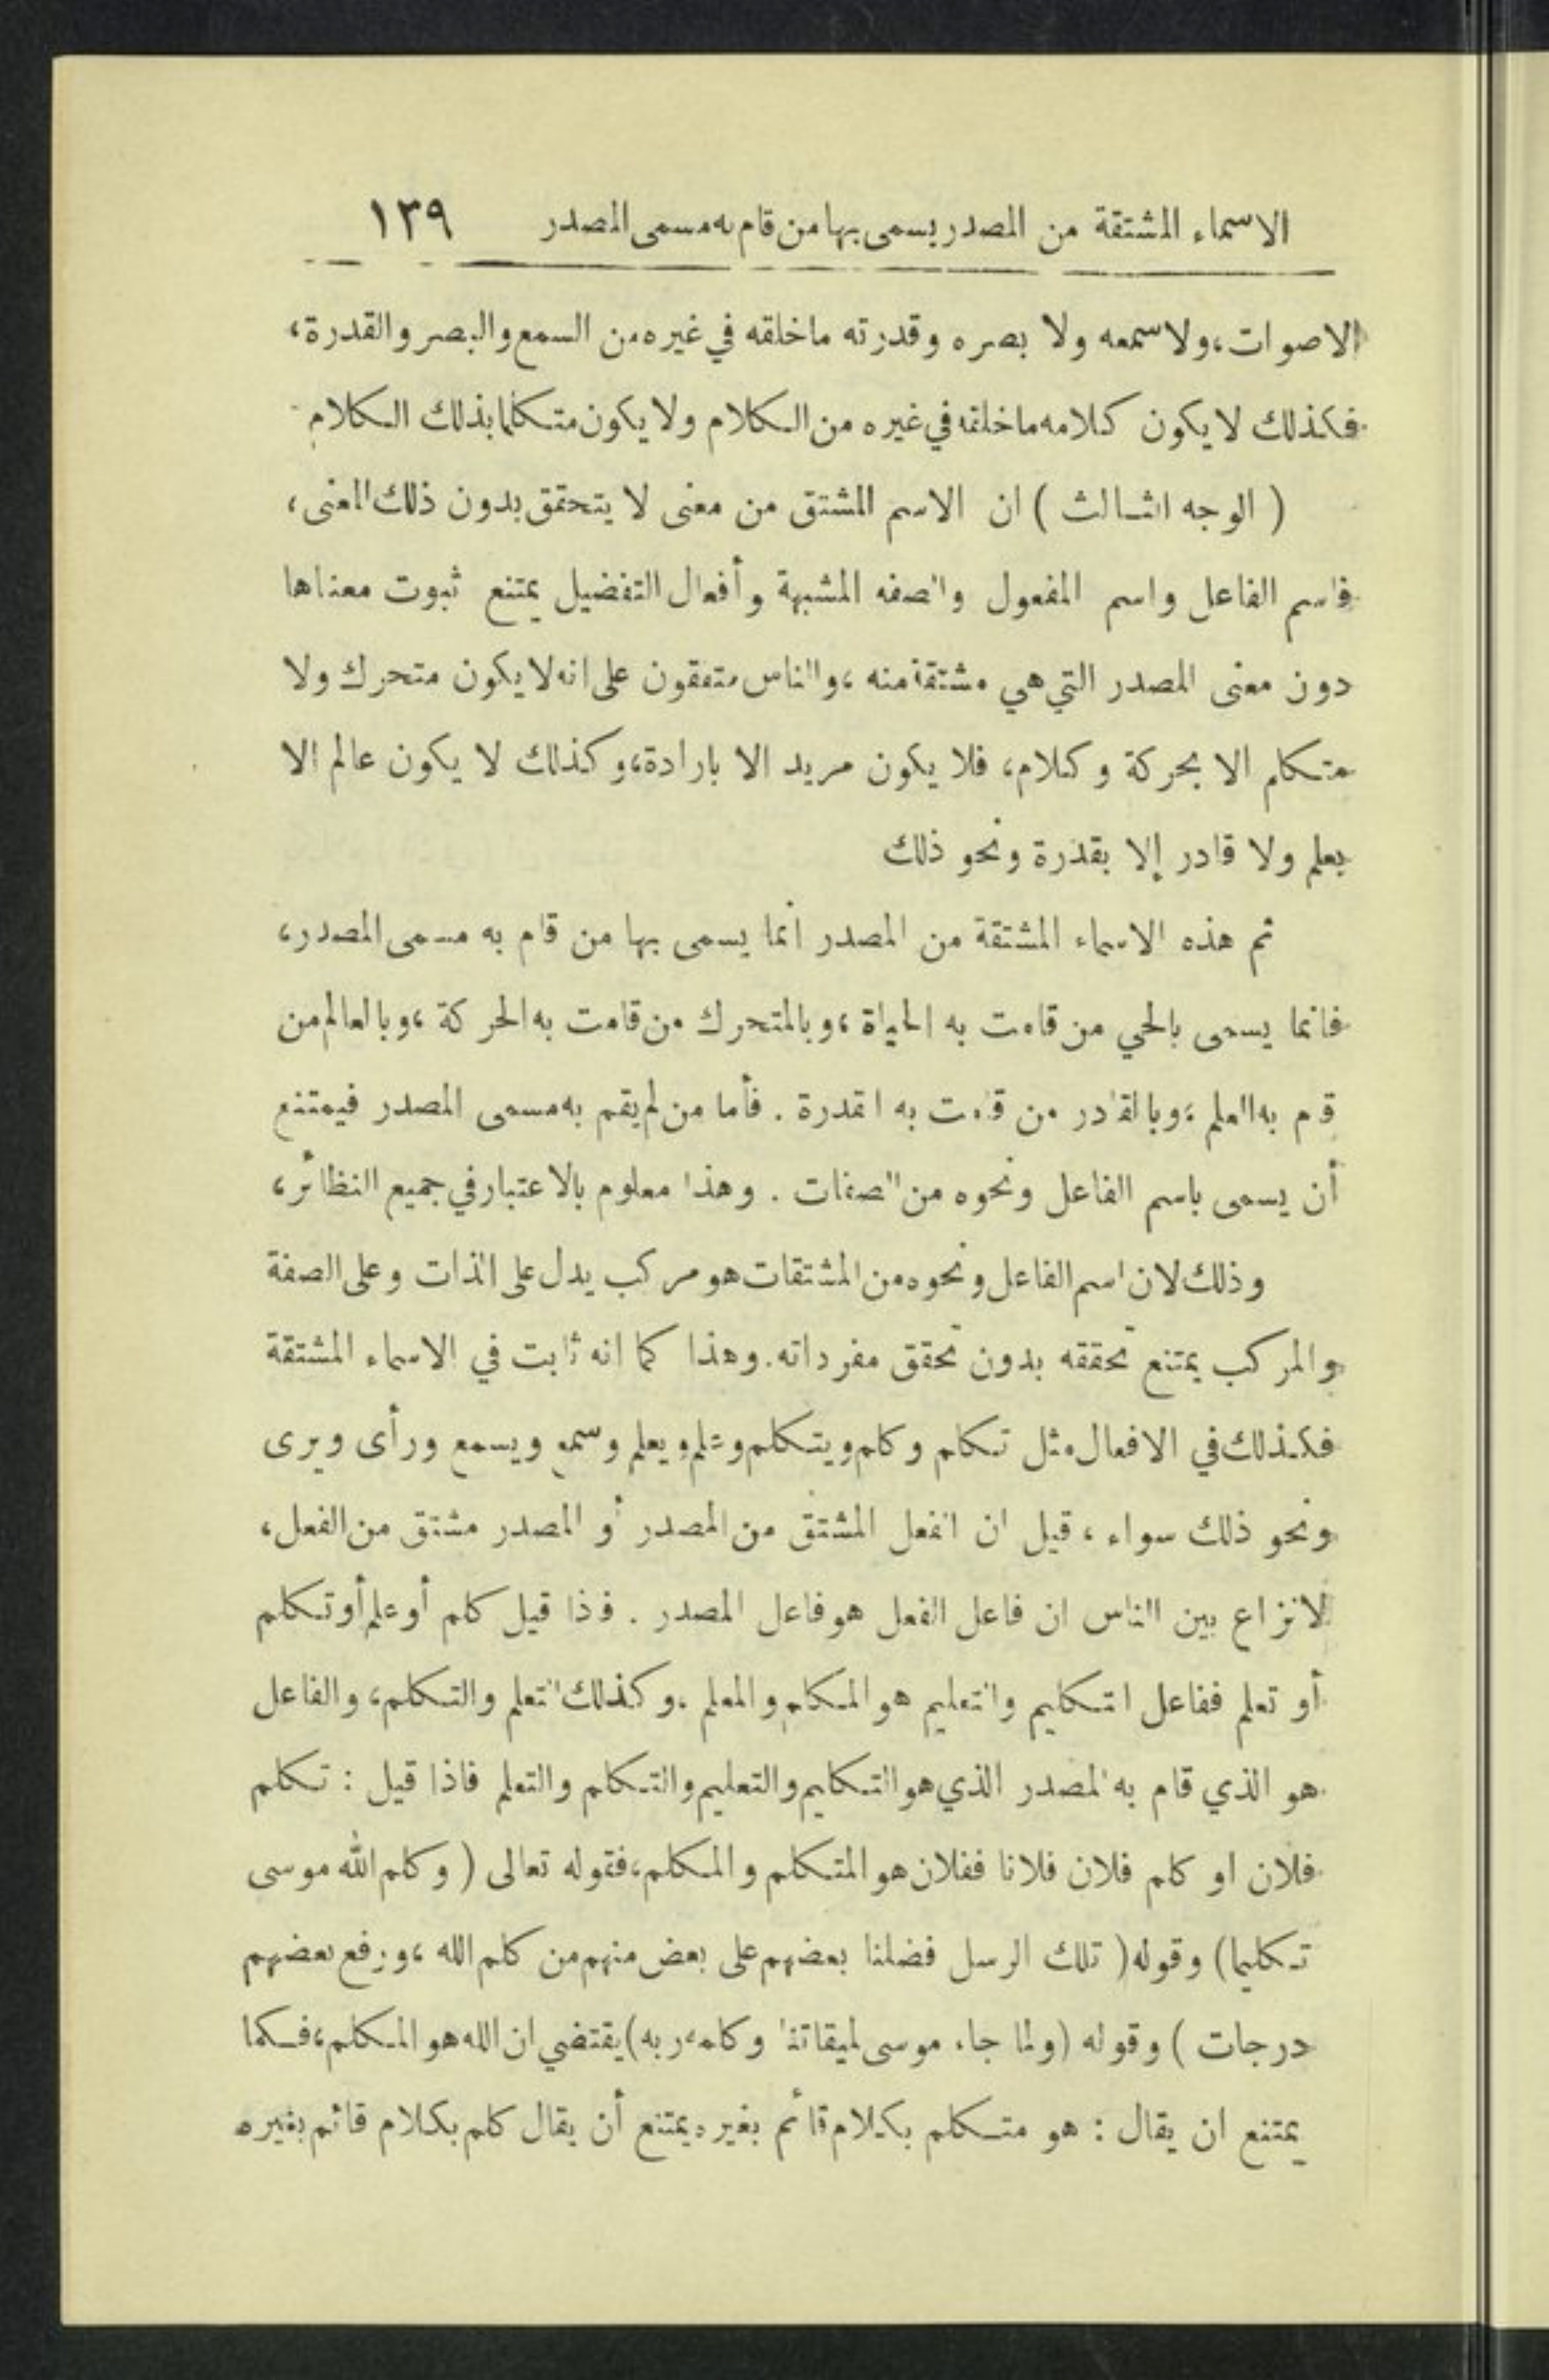 الاسماء المشتقة من المصدر يسمى بها من قام به مسمى المصدر ١٣٩
الاصوات، ولا سمعه ولا بصره وقدرته ما خلقه في غيره من السمع والبصر والقدرة،
فكذلك لا يكون كلامه ما خلقه في غيره من الكلام ولا يكون متكلما بذلك الكلام
( الوجه الثالث ) ان الاسم المشتق من معنى لا يتحقق بدون ذلك المعنى،
فاسم الفاعل واسم المفعول والصفه المشبهة وأفعال التفضيل يمتنع ثبوت معناها
دون معنى المصدر التي هي مشتقة منه ، والناس متفقون على انه لا يكون متحرك ولا
متكلم الا بحركة وكلام، فلا يكون مريد الا بارادة، وكذلك لا يكون عالم الا
بعلم ولا قادر إلا بقدرة ونحو ذلك
ثم هذه الاسماء المشتقة من المصدر انما يسمى بها من قام به مسمى المصدر،
فانما يسمى بالحي من قامت به الحياة ، وبالمتحرك من قامت به الحركة ، وبالعالم من
قام به العلم ، وبالقادر من قامت به القدرة . فأما من لم يقم به مسمى المصدر فيمتنع
أن يسمى باسم الفاعل ونحوه من الصفات . وهذا معلوم بالاعتبار في جميع النظائر،
وذلك لان اسم الفاعل ونحوه من المشتقات هو مركب يدل على الذات وعلى الصفة
والمركب يمتنع تحققه بدون تحقق مفرداته. وهذا كما انه ثابت في الاسماء المشتقة
فكذلك في الافعال مثل تكلم وكلم ويتكلم وعلم ويعلم وسمع ويسمع ورأى ويرى
ونحو ذلك سواء ، قيل ان الفعل المشتق من المصدر أو المصدر مشتق من الفعل،
لا نزاع بين الناس ان فاعل الفعل هو فاعل المصدر . فاذا قيل كلم أو علم أو تكلم
أو تعلم ففاعل التكليم والتعليم هو المكلم والمعلم . وكذلك التعلم والتكلم، والفاعل
هو الذي قام به المصدر الذي هو التكليم والتعليم والتكلم والتعلم فاذا قيل : تكلم
فلان او كلم فلان فلانا ففلان هو المتكلم والمكلم، فقوله تعالى ( وكلم الله موسى
تكليما) وقوله ( تلك الرسل فضلنا بعضهم على بعض منهم من كلم الله ، ورفع بعضهم
درجات ) وقوله (ولما جاء موسى لميقاتنا وكلمه ربه) يقتضي ان الله هو المكلم، فكما
يمتنع ان يقال : هو متكلم بكلام قائم بغيره يمتنع أن يقال كلم بكلام قائم بغيره